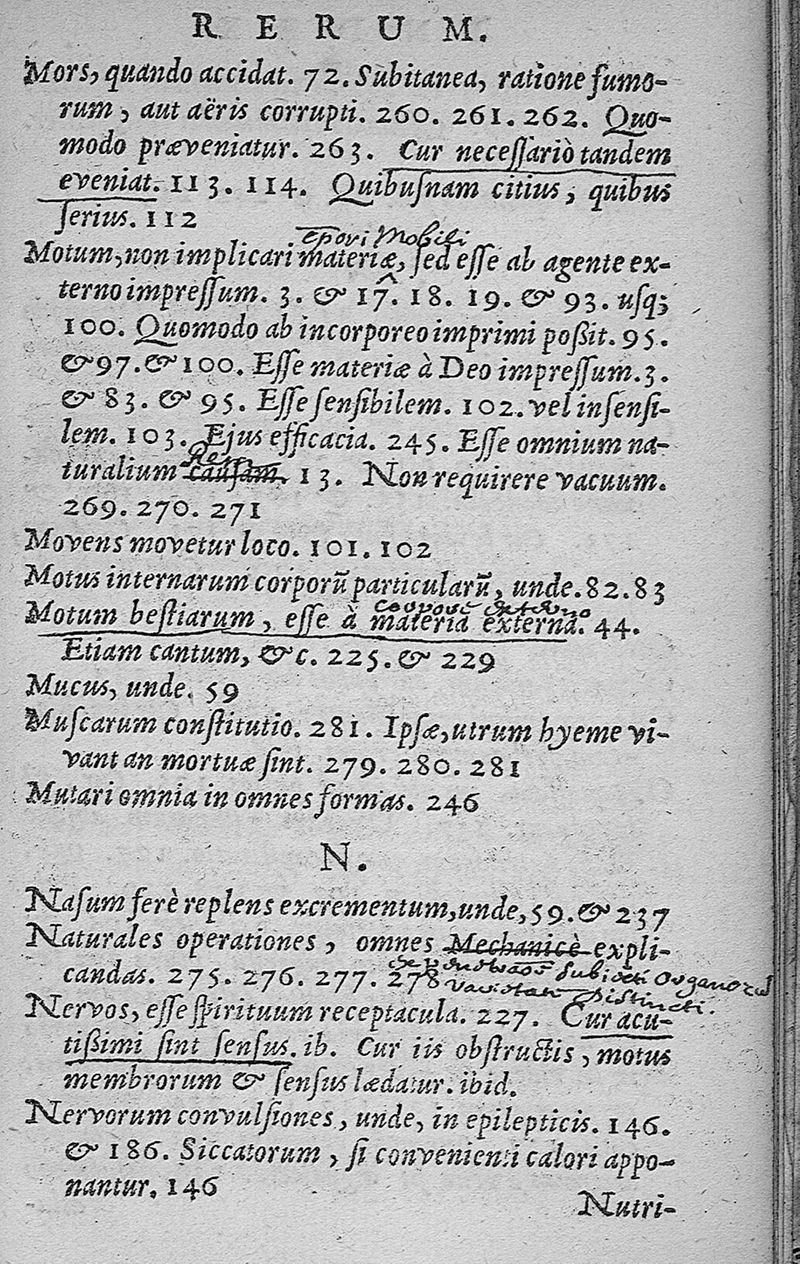 RERUM.
Mors, quando accidat. 72. Subitanea, ratione fumo-
rum, aut aëris corrupti. 260. 261. 262. Quo-
modo præveniatur. 263. Cur neceſſariò tandem
eveniat. 113. 114. Quibuſnam citius, quibus
ſerius. 112
Mobili
Motum, non implicari materiæ, ſed eſſe ab agente ex-
terno impreſſum. 3. & 17. 18. 19. & 93. uſq;
100. Quomodo ab incorporeo imprimi poßit. 95.
& 97. & 100. Eſſe materiæ à Deo impreſſum. 3.
& 83. & 95. Eſſe ſenſibilem. 102. vel inſenſi-
lem. 103. Ejus efficacia. 245. Eſſe omnium na-
turalium cauſam. 13. Non requirere vacuum.
269. 270. 271
Movens movetur loco. 101. 102
Motus internarum corporũ particularũ, unde. 82. 83
Motum beſtiarum, eſſe à materia externa. 44.
Etiam cantum, &c. 225. & 229
Mucus, unde. 59
Muſcarum conſtitutio. 281. Ipſæ, utrum hyeme vi-
vant an mortuæ ſint. 279. 280. 281
Mutari omnia in omnes formas. 246
N.
Naſum ferè replens excrementum, unde, 59. & 237
Naturales operationes, omnes Mechanicè expli-
candas. 275. 276. 277. 278
Subiecti
Distincti.
Nervos, eſſe ſpirituum receptacula. 227. Cur acu-
tißimi ſint ſenſus. ib. Cur iis obſtructis, motus
membrorum & ſenſus lædatur. ibid.
Nervorum convulſiones, unde, in epilepticis. 146.
& 186. Siccatorum, ſi convenienti calori appo-
nantur. 146
Nutri-